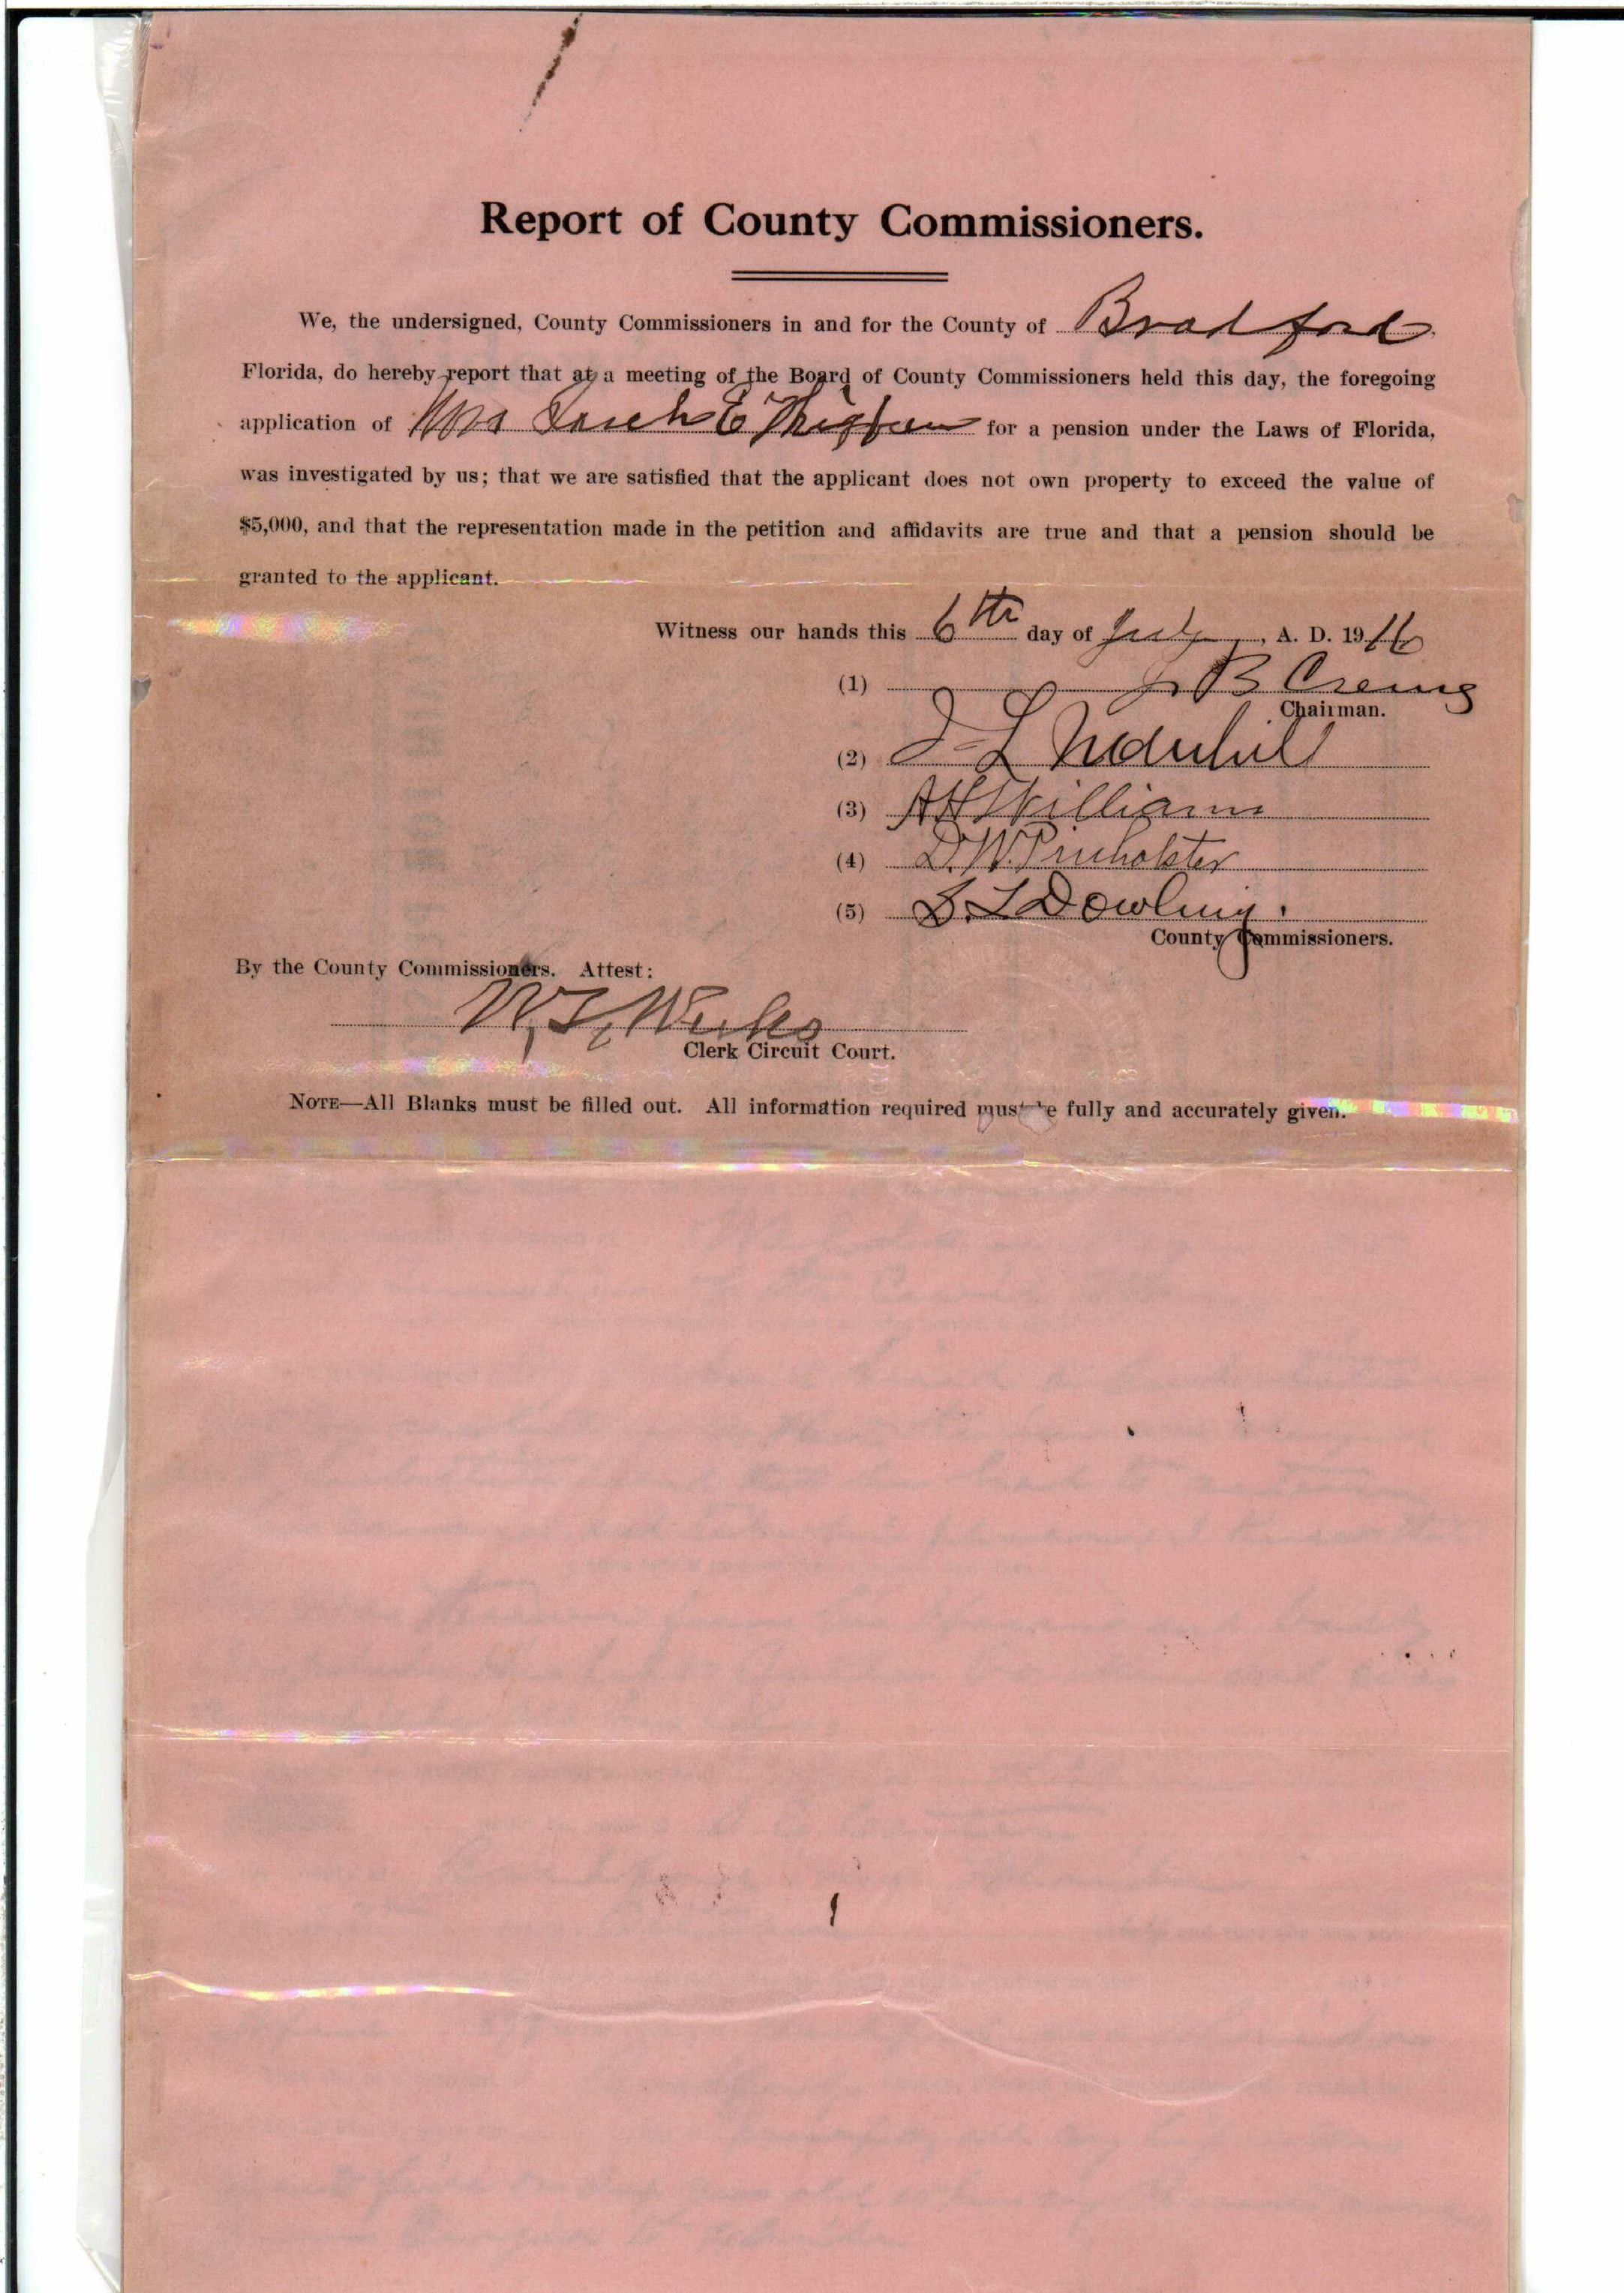 Report of County Commissioners.
We, the undersigned, County Commissioners in and for the County of Bradford,
Florida, do hereby report that at a meeting of the Board of County Commissioners held this day, the foregoing
application of Mrs E for a pension under the Laws of Florida,
was investigated by us; that we are satisfied that the applicant does not own property to exceed the value of
$5,000, and that the representation made in the petition and affidavits are true and that a pension should be
granted to the applicant.
Witness our hands this 6th day of July, A. D. 1916
(1) B Crews
Chairman.
(2) L
(3) A H Williams
(4) D. W. Pinholster
(5) S. L Dowling.
County Commissioners.
By the County Commissioners. Attest:
W. T. Weeks
Clerk Circuit Court.
NOTE—All Blanks must be filled out. All information required must be fully and accurately given.